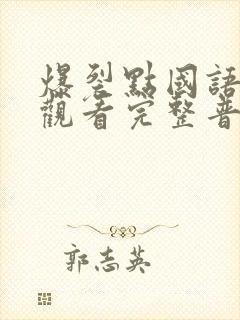 爆裂點國語
觀看完整普
郭志英